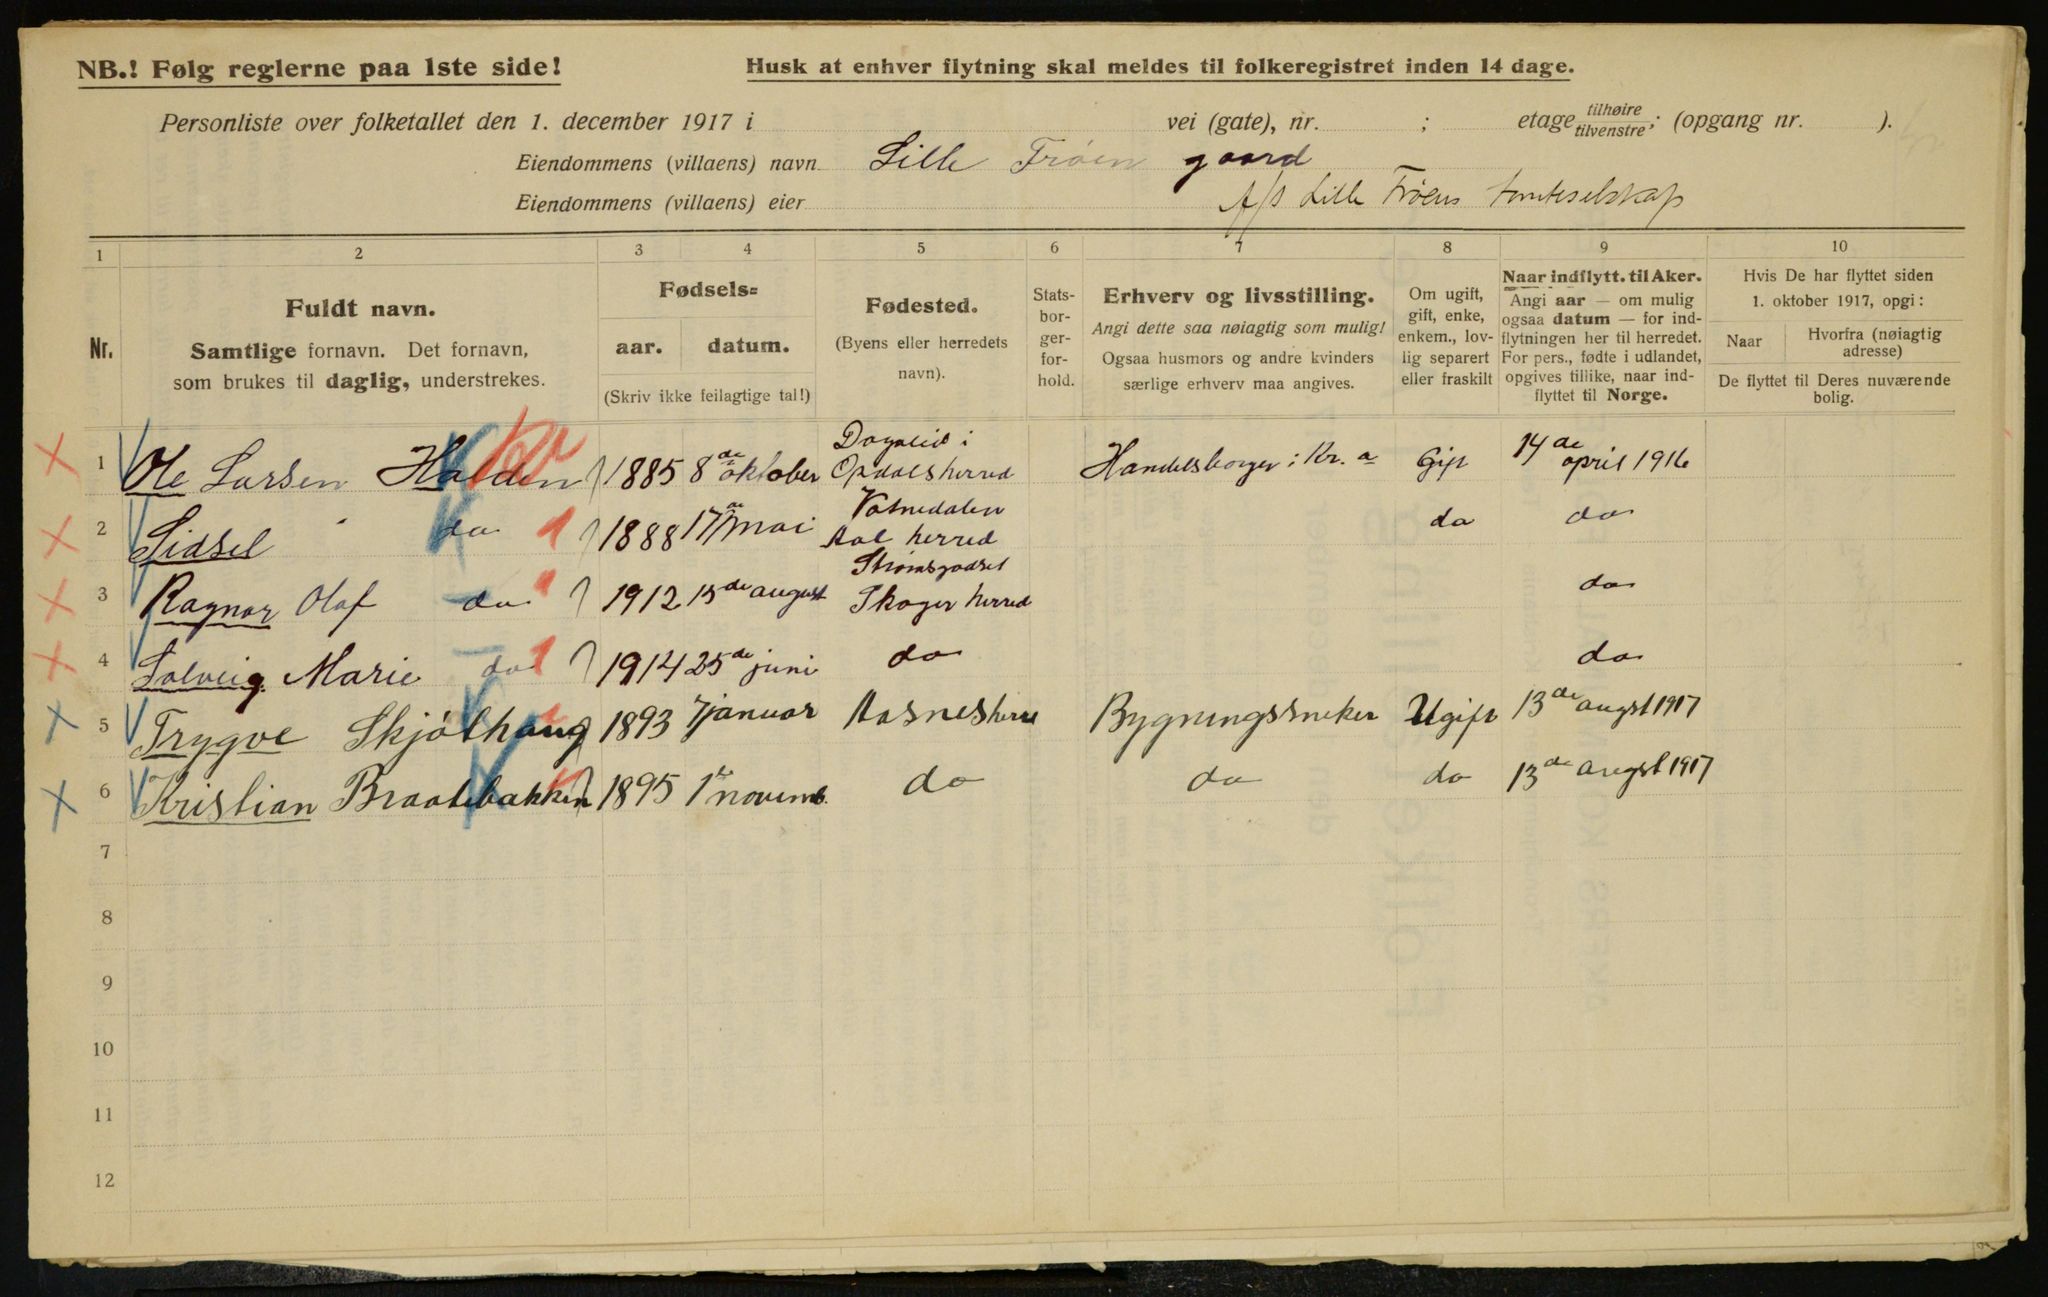 NB.! Følg reglerne paa 1ste side!
Husk at enhver flytning skal meldes til folkeregistret inden 14 dage.
Personliste over folketallet den 1. december 1917 i vei (gate), nr. ; etage tilhøire tilvenstre; (opgang nr. ).
Eiendommens (villaens) navn Lille Frøen gaard
Eiendommens (villaens) eier A/S Lille Frøens tomteselskap
1 2 3 4 5 6 7 8 9 10
Nr.
Fuldt navn.
Samtlige fornavn. Det fornavn,
som brukes til daglig, understrekes.
Fødsels-
aar. datum.
(Skriv ikke feilagtige tal!)
Fødested.
(Byens eller herredets
navn).
Stats-
bor-
ger-
for-
hold.
Erhverv og livsstilling.
Angi dette saa nøiagtig som mulig!
Ogsaa husmors og andre kvinders
særlige erhverv maa angives.
Om ugift,
gift, enke,
enkem., lov-
lig separert
eller fraskilt
Naar indflytt. til Aker.
Angi aar — om mulig
ogsaa datum — for ind-
flytningen her til herredet.
For pers., fødte i udlandet,
opgives tillike, naar ind-
flyttet til Norge.
Hvis De har flyttet siden
1. oktober 1917, opgi:
Naar Hvorfra (nøiagtig
adresse)
De flyttet til Deres nuværende
bolig.
1 Ole Larsen Halden 1885 8de oktober Dagalid i Opdals herred Handelsborger i Kr.a Gift 14de april 1916
2 Sidsel do 1888 17de mai Vatnedalen Aal herred do do
3 Ragnar Olaf do 1912 15de august Strømsgodset Skoger herred do
4 Solveig Marie do 1914 25de juni do do
5 Trygve Skjølhaug 1893 7 januar Aasnes herre Bygningssneker Ugift 13de augst 1917
6 Kristian Braatebakken 1895 1te novemb. do do do 13de augst 1917
7
8
9
10
11
12